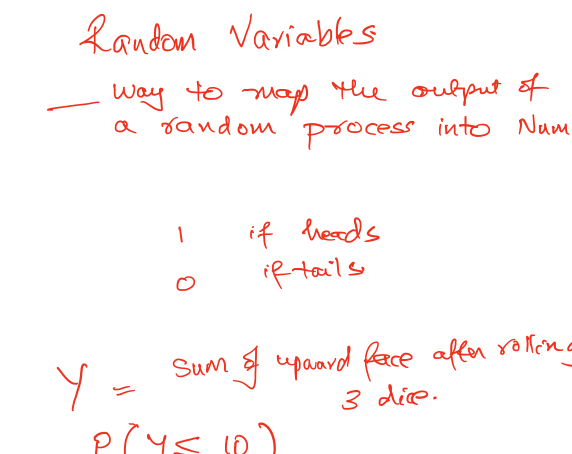 Random Variables
— way to map the output of
a random process into Num
1 if heads
0 if tails
Y = sum of upward face after rolling
3 dice.
P(Y ≤ 10)